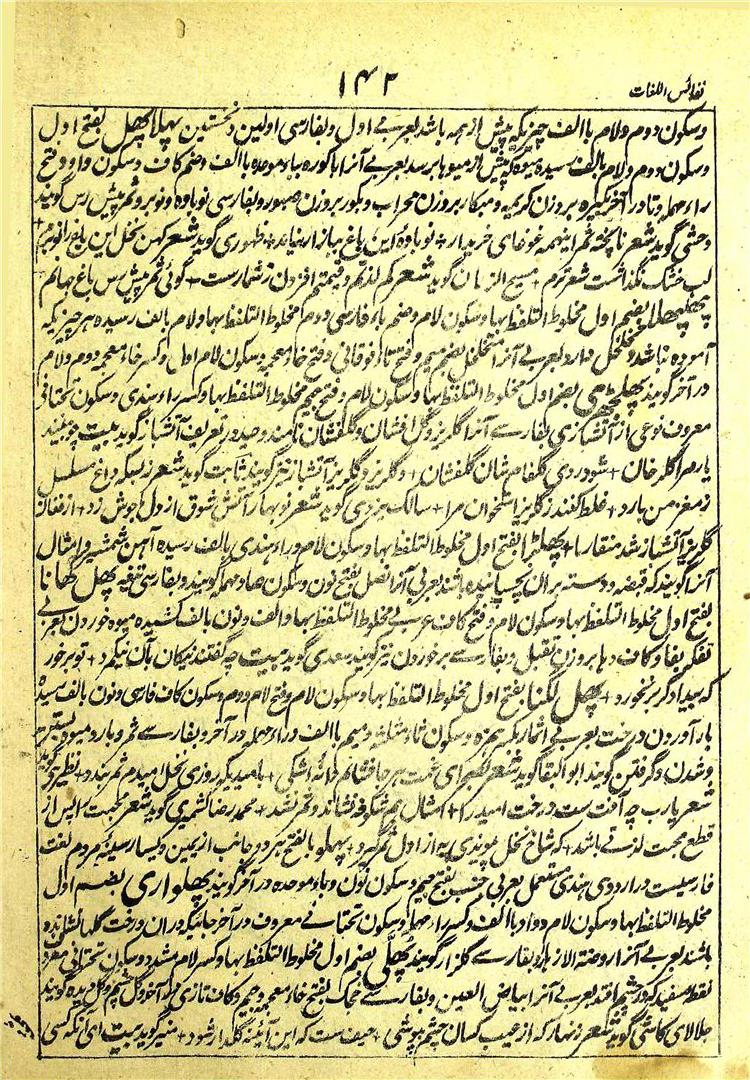 نفائس اللغات
۱۴۲
وسکون دوم ولام باالف چیزیکه پیش از همه باشد بعربی اول وبفارسی اولین ونخستین پہلا پھل بفتح اول
وسکون دوم ولام بالف رسیده میوه که پیش از میوها برسد بعربی آنرا باکوره بباء موحده باالف وضم کاف وسکون واو وفتح
راء مهمله وتا در آخر بکیره بروزن کریمه ومبکار بروزن محراب وبکور بروزن صبور وبفارسی نوباوه ونوبر وثمر پیش رس گویند
وحشی گوید شعر ناپخته ثمر اینهمه غوغای خریدار + نوباوهٔ این باغ ببازار نیاید + ظهوری گوید شعر کهن نخل این باغ را نوبرم
لب خشک نگذاشت شعر ترم + مسیح الزمان گوید شعر کم لذتم وقیمتم افزون ز شمارست + گوئی ثمر پیش رس باغ جهانم
پھلپھلا بضم اول مخلوط التلفظ بها وسکون لام وضم باء فارسی دوم مخلوط التلفظ بها ولام بالف رسیده هر چیزیکه
آموده نباشد وتخلخل دارد بعربی آنرا متخلخل بضم میم وفتح تاء فوقانی وفتح خاء معجمه وسکون لام اول وکسر خاء معجمه دوم ولام
در آخر گویند پھلجھڑی بضم اول مخلوط التلفظ بها وسکون لام وفتح جیم مخلوط التلفظ بها وکسر راء هندی وسکون تحتانی
معروف نوعی از آتشبازی بفارسی آنرا گلریز وگل افشان وگلفشان نامند وحید در تعریف آتشباز گوید بیت چو بیند
یار مرا گلرخان + شود روی گلفام شان گلفشان + وگلریز وگلریز آتشباز نیز گویند ثابت گوید شعر ز بسکه داغ مسلسل
ز مغز من بارد + غلط کنند ز گلریز استخوان مرا + سالک یزدی گوید شعر نوبهار آتش شوق از دل ما جوش زد + از فغان
گلریز آتشباز شد منقار ما + پھلڑا بفتح اول مخلوط التلفظ بها وسکون لام وراء هندی بالف رسیده آهن شمشیر وامثال
آنرا گویند که قبضه ودسته بر آن چسپانیده باشند بعربی آنرا نصل بفتح نون وسکون صاد مهمله گویند وبفارسی تیغه پھل کھانا
بفتح اول مخلوط التلفظ بها وسکون لام وفتح کاف عربی مخلوط التلفظ بها والف ونون بالف کشیده میوه خوردن بعربی
تفکه بفا وکاف وها بروزن تقبل وبفارسی بر خوردن نیز گویند سعدی گوید بیت چه گفتند نیکان بآن نیکمرد + تو بر خور
که بیدادگر بر نخورد + پھل لگنا بفتح اول مخلوط التلفظ بها وسکون لام وفتح لام دوم وسکون کاف فارسی ونون بالف رسیده
بار آوردن درخت بعربی اثمار بکسر همزه وسکون ثاء مثلثه ومیم باالف وراء مهمله در آخر وبفارسی ثمر وبار ومیوه بستن
وشدن وگرفتن گویند ابوالبقا گوید شعر بصحرای غمت هر جا فشانم دانهٔ اشکی + بامید یکه روزی نخل امیدم ثمر بندد + نظیری گوید
شعر یارب چه آفت ست درخت امید را + امسال هم شگوفه نشاند وثمر نشد + محمد رضا کشمیری گوید شعر محبت پس از
قطع محبت لذتی باشد + که شاخ نخل پیوندی به از اول ثمر گیرد + پہلو بالفتح هر دو جانب از یمین ویسار سینهٔ مردم لغت
فارسیست در اردوی هندی مستعمل بعربی جنب بفتح جیم وسکون نون وباء موحده در آخر گویند پھلواری بضم اول
مخلوط التلفظ بها وسکون لام وواو باالف وکسر راء مهمله وسکون تحتانی معروف در آخر جائیکه در آن درخت گلها نشانده
باشند بعربی آنرا روضة الازهار وبفارسی گلزار گویند پُھلّی بضم اول مخلوط التلفظ بها وکسر لام مشدد وسکون تحتانی معروف
نقطه سفید که در چشم افتد بعربی آنرا بیاض العین وبفارسی خجک بفتح خاء معجمه وجیم وکاف تازی در آخر وگل چشم وگل دیده گویند
جلالای کاشی گوید شعر زنهار که از عیب کسان چشم بپوشی + حیف ست که این آئینه گلدار شود + منیر گوید بیت ای آنکه کسی